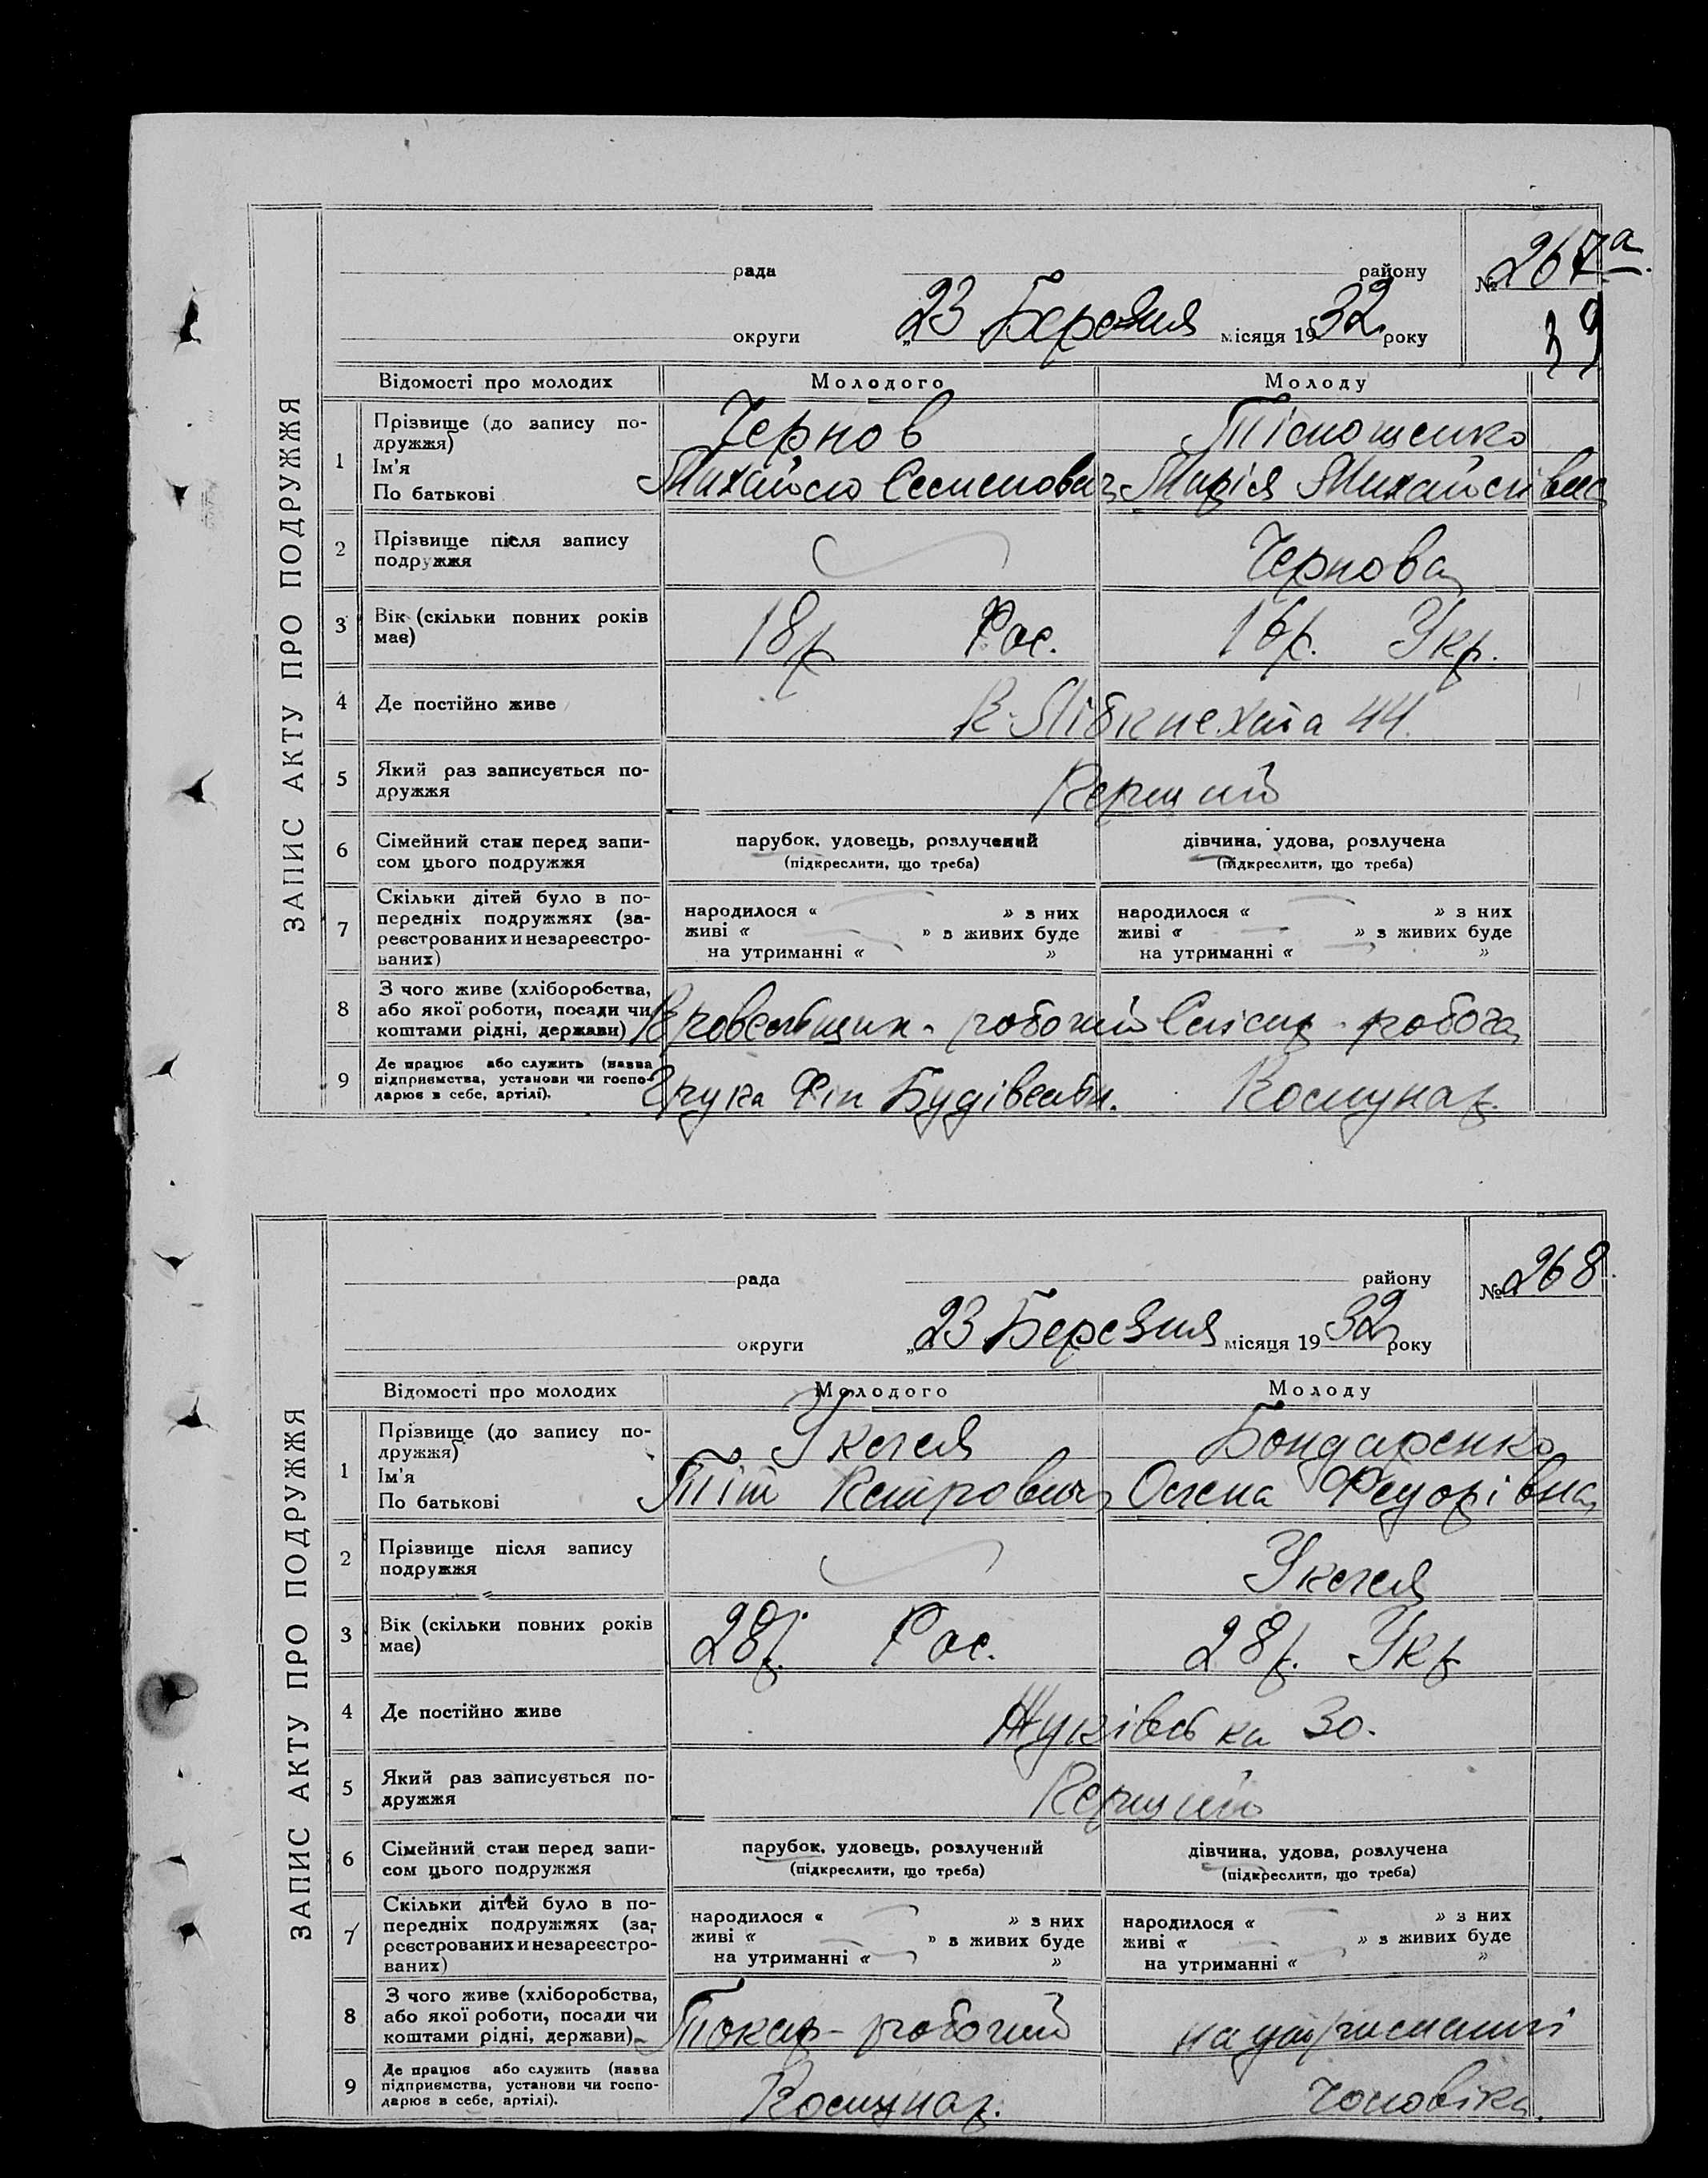 ЗАПИС АКТУ ПРО ПОДРУЖЖЯ
рада району № 267а
округи „23 Березня місяця 1932 року 39
Відомості про молодих Молодого Молоду
1 Прізвище (до запису по- Чернов
дружжя)
Ім'я Михайло Семенович Марія Михайлівна
По батькові
2 Прізвище після запису Чернова
подружжя
3 Вік (скільки повних років 18 р Рос. 16 р. Укр.
має)
4 Де постійно живе К. Лібкнехта 44.
5 Який раз записується по- Перший
дружжя
6 Сімейний стан перед запи- парубок, удовець, розлучений дівчина, удова, розлучена
сом цього подружжя (підкреслити, що треба) (підкреслити, що треба)
7 Скільки дітей було в по- народилося « » з них народилося « » з них
передніх подружжях (за- живі « » з живих буде живі « » з живих буде
реєстрованих и незареєстро- на утриманні « » на утриманні « »
ваних)
8 З чого живе (хліборобства,
або якої роботи, посади чи
коштами рідні, держави) Кровельщик - робочий Слісар - робоча
9 Де працює або служить (назва
підприємства, установи чи госпо-
дарює в себе, артілі). Будівельн. Комунар.
ЗАПИС АКТУ ПРО ПОДРУЖЖЯ
рада району № 268.
округи „23 Березня місяця 1932 року
Відомості про молодих Молодого Молоду
1 Прізвище (до запису по- Бондаренко
дружжя)
Ім'я Тіт Петрович Олена Федорівна
По батькові
2 Прізвище після запису
подружжя
3 Вік (скільки повних років 28 р. Рос. 28 р. Укр
має)
4 Де постійно живе Жуківська 30.
5 Який раз записується по- Перший
дружжя
6 Сімейний стан перед запи- парубок, удовець, розлучений дівчина, удова, розлучена
сом цього подружжя (підкреслити, що треба) (підкреслити, що треба)
7 Скільки дітей було в по- народилося « » з них народилося « » з них
передніх подружжях (за- живі « » з живих буде живі « » з живих буде
реєстрованих и незареєстро- на утриманні « » на утриманні « »
ваних)
8 З чого живе (хліборобства,
або якої роботи, посади чи
коштами рідні, держави) Токар - робочий на утриманні
9 Де працює або служить (назва
підприємства, установи чи госпо-
дарює в себе, артілі). Комунар. чоловіка.